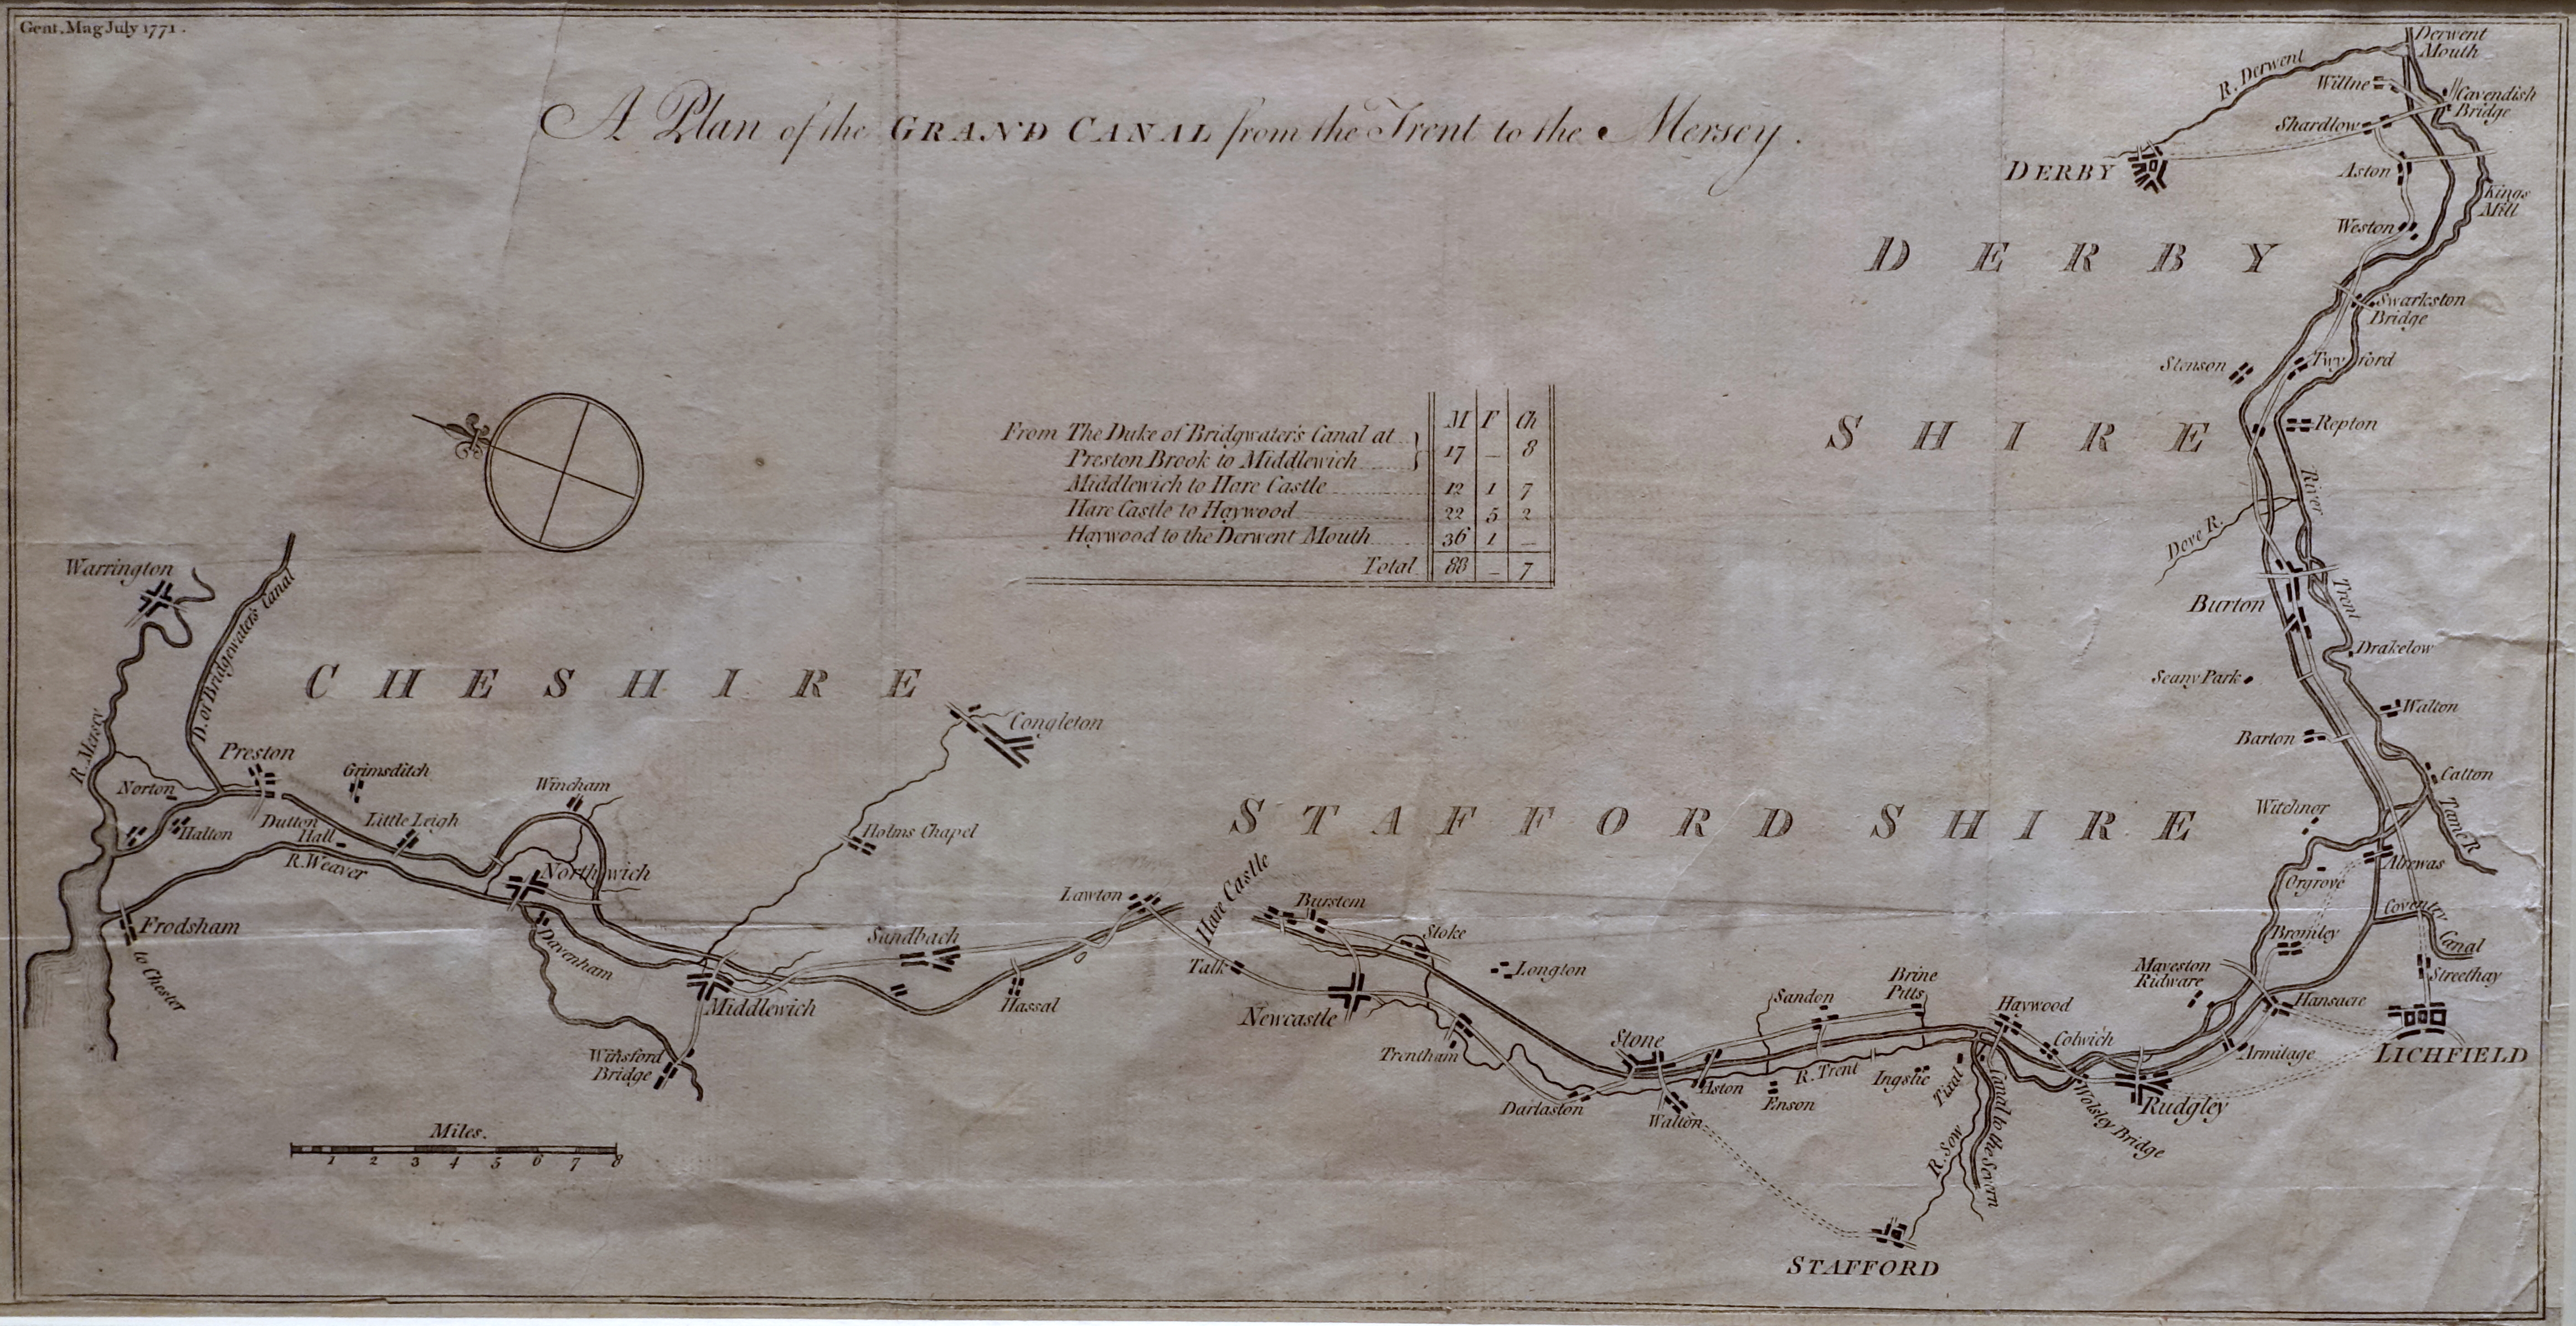 Gent. Mag July 1771.
A Plan of the GRAND CANAL from the Trent to the Mersey.
Derwent
Mouth
R. Derwent
Willne
Cavendish
Bridge
Shardlow
DERBY
Aston
Kings
Mill
Weston
DERBY
Swarkston
Bridge
Stenson
Twyford
SHIRE
Repton
M F Ch
From The Duke of Bridgwater's Canal at
Preston Brook to Middlewich 17 – 8
Middlewich to Hare Castle 12 1 7
Hare Castle to Haywood 22 5 2
Haywood to the Derwent Mouth 36 1 –
Total 88 – 7
River
Trent
Dove R.
Burton
Drakelow
Seany Park
Walton
Barton
Catton
Tame R
Witchnor
Alrewas
Orgrove
Coventry
Canal
Bromley
Streethay
Maveston
Ridware
Hansacre
LICHFIELD
Armitage
Warrington
D. of Bridgewater's Canal
CHESHIRE
R. Mersey
Preston
Norton
Grimsditch
Halton
Dutton
Hall
Little Leigh
Wincham
R. Weaver
Northwich
Congleton
Holms Chapel
Frodsham
to Chester
Davenham
Middlewich
Winsford
Bridge
Sandbach
Hassal
Lawton
STAFFORD SHIRE
Hare Castle
Burstem
Stoke
Talk
Longton
Newcastle
Trentham
Darlaston
Stone
Walton
Aston
Sandon
Enson
R. Trent
Brine
Pitts
Ingstie
Haywood
Colwich
Tixal
R. Sow
Canal to the Severn
Wolsley Bridge
Rudgley
STAFFORD
Miles.
1 2 3 4 5 6 7 8